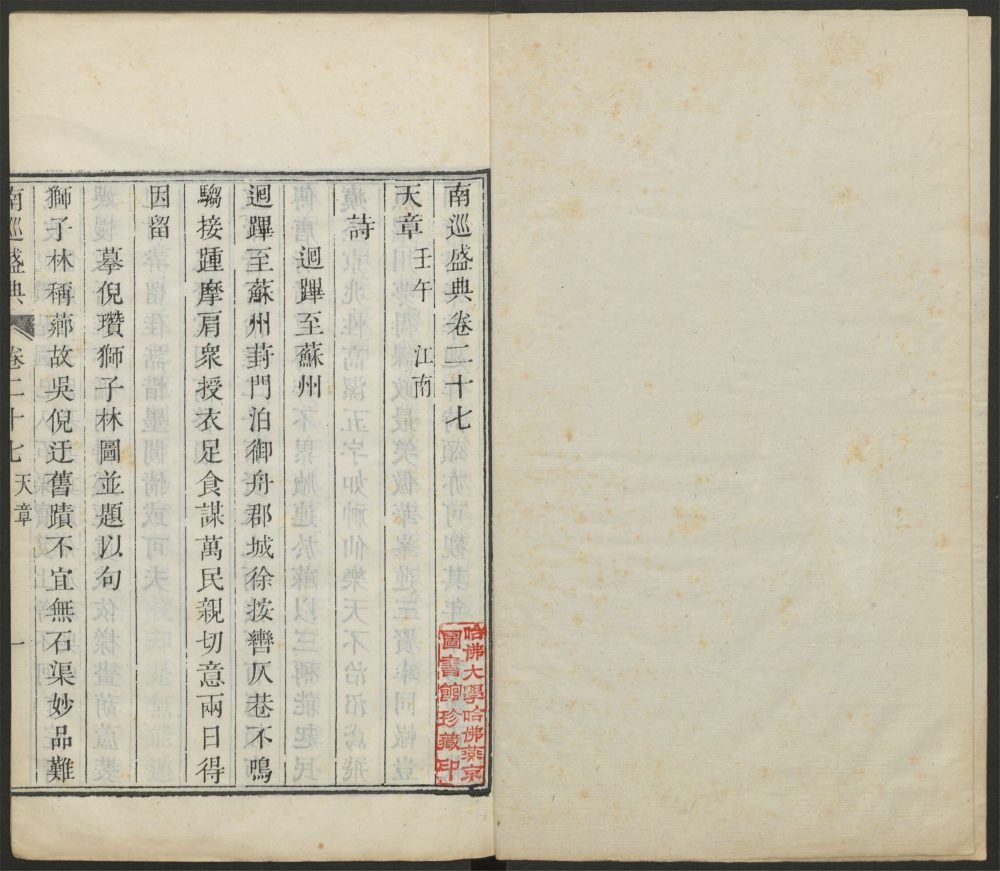 南巡盛典卷二十七
天章 壬午 江南
詩
迴蹕至蘇州
迴蹕至蘇州葑門泊御舟郡城徐按轡仄巷不鳴
騶接踵摩肩衆授衣足食謀萬民親切意兩日得
因留
摹倪瓚獅子林圖並題以句
獅子林稱薌故吳倪迂舊蹟不宜無石渠妙品難
南巡盛典 卷二十七 天章 一
哈佛大學哈佛燕京
圖書館珍藏印